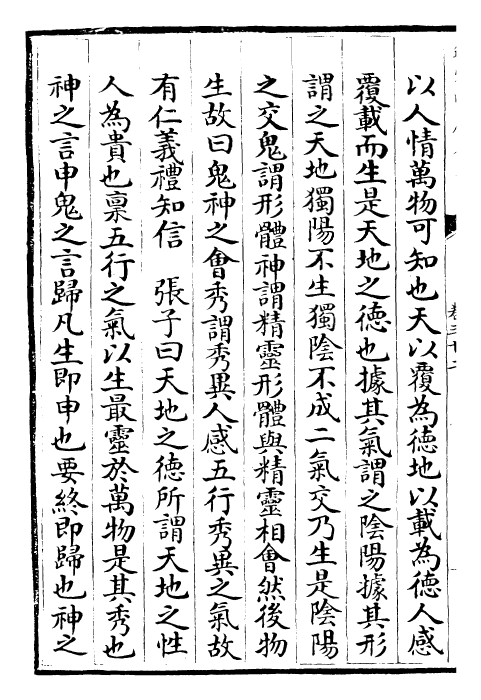 以人情萬物可知也天以覆為徳地以載為徳人感
覆載而生是天地之徳也據其氣謂之陰陽據其形
謂之天地獨陽不生獨陰不成二氣交乃生是陰陽
之交鬼謂形體神謂精靈形體與精靈相會然後物
生故曰鬼神之會秀謂秀異人感五行秀異之氣故
有仁義禮知信　張子曰天地之徳所謂天地之性
人為貴也稟五行之氣以生最靈於萬物是其秀也
神之言申鬼之言歸凡生即申也要終即歸也神之